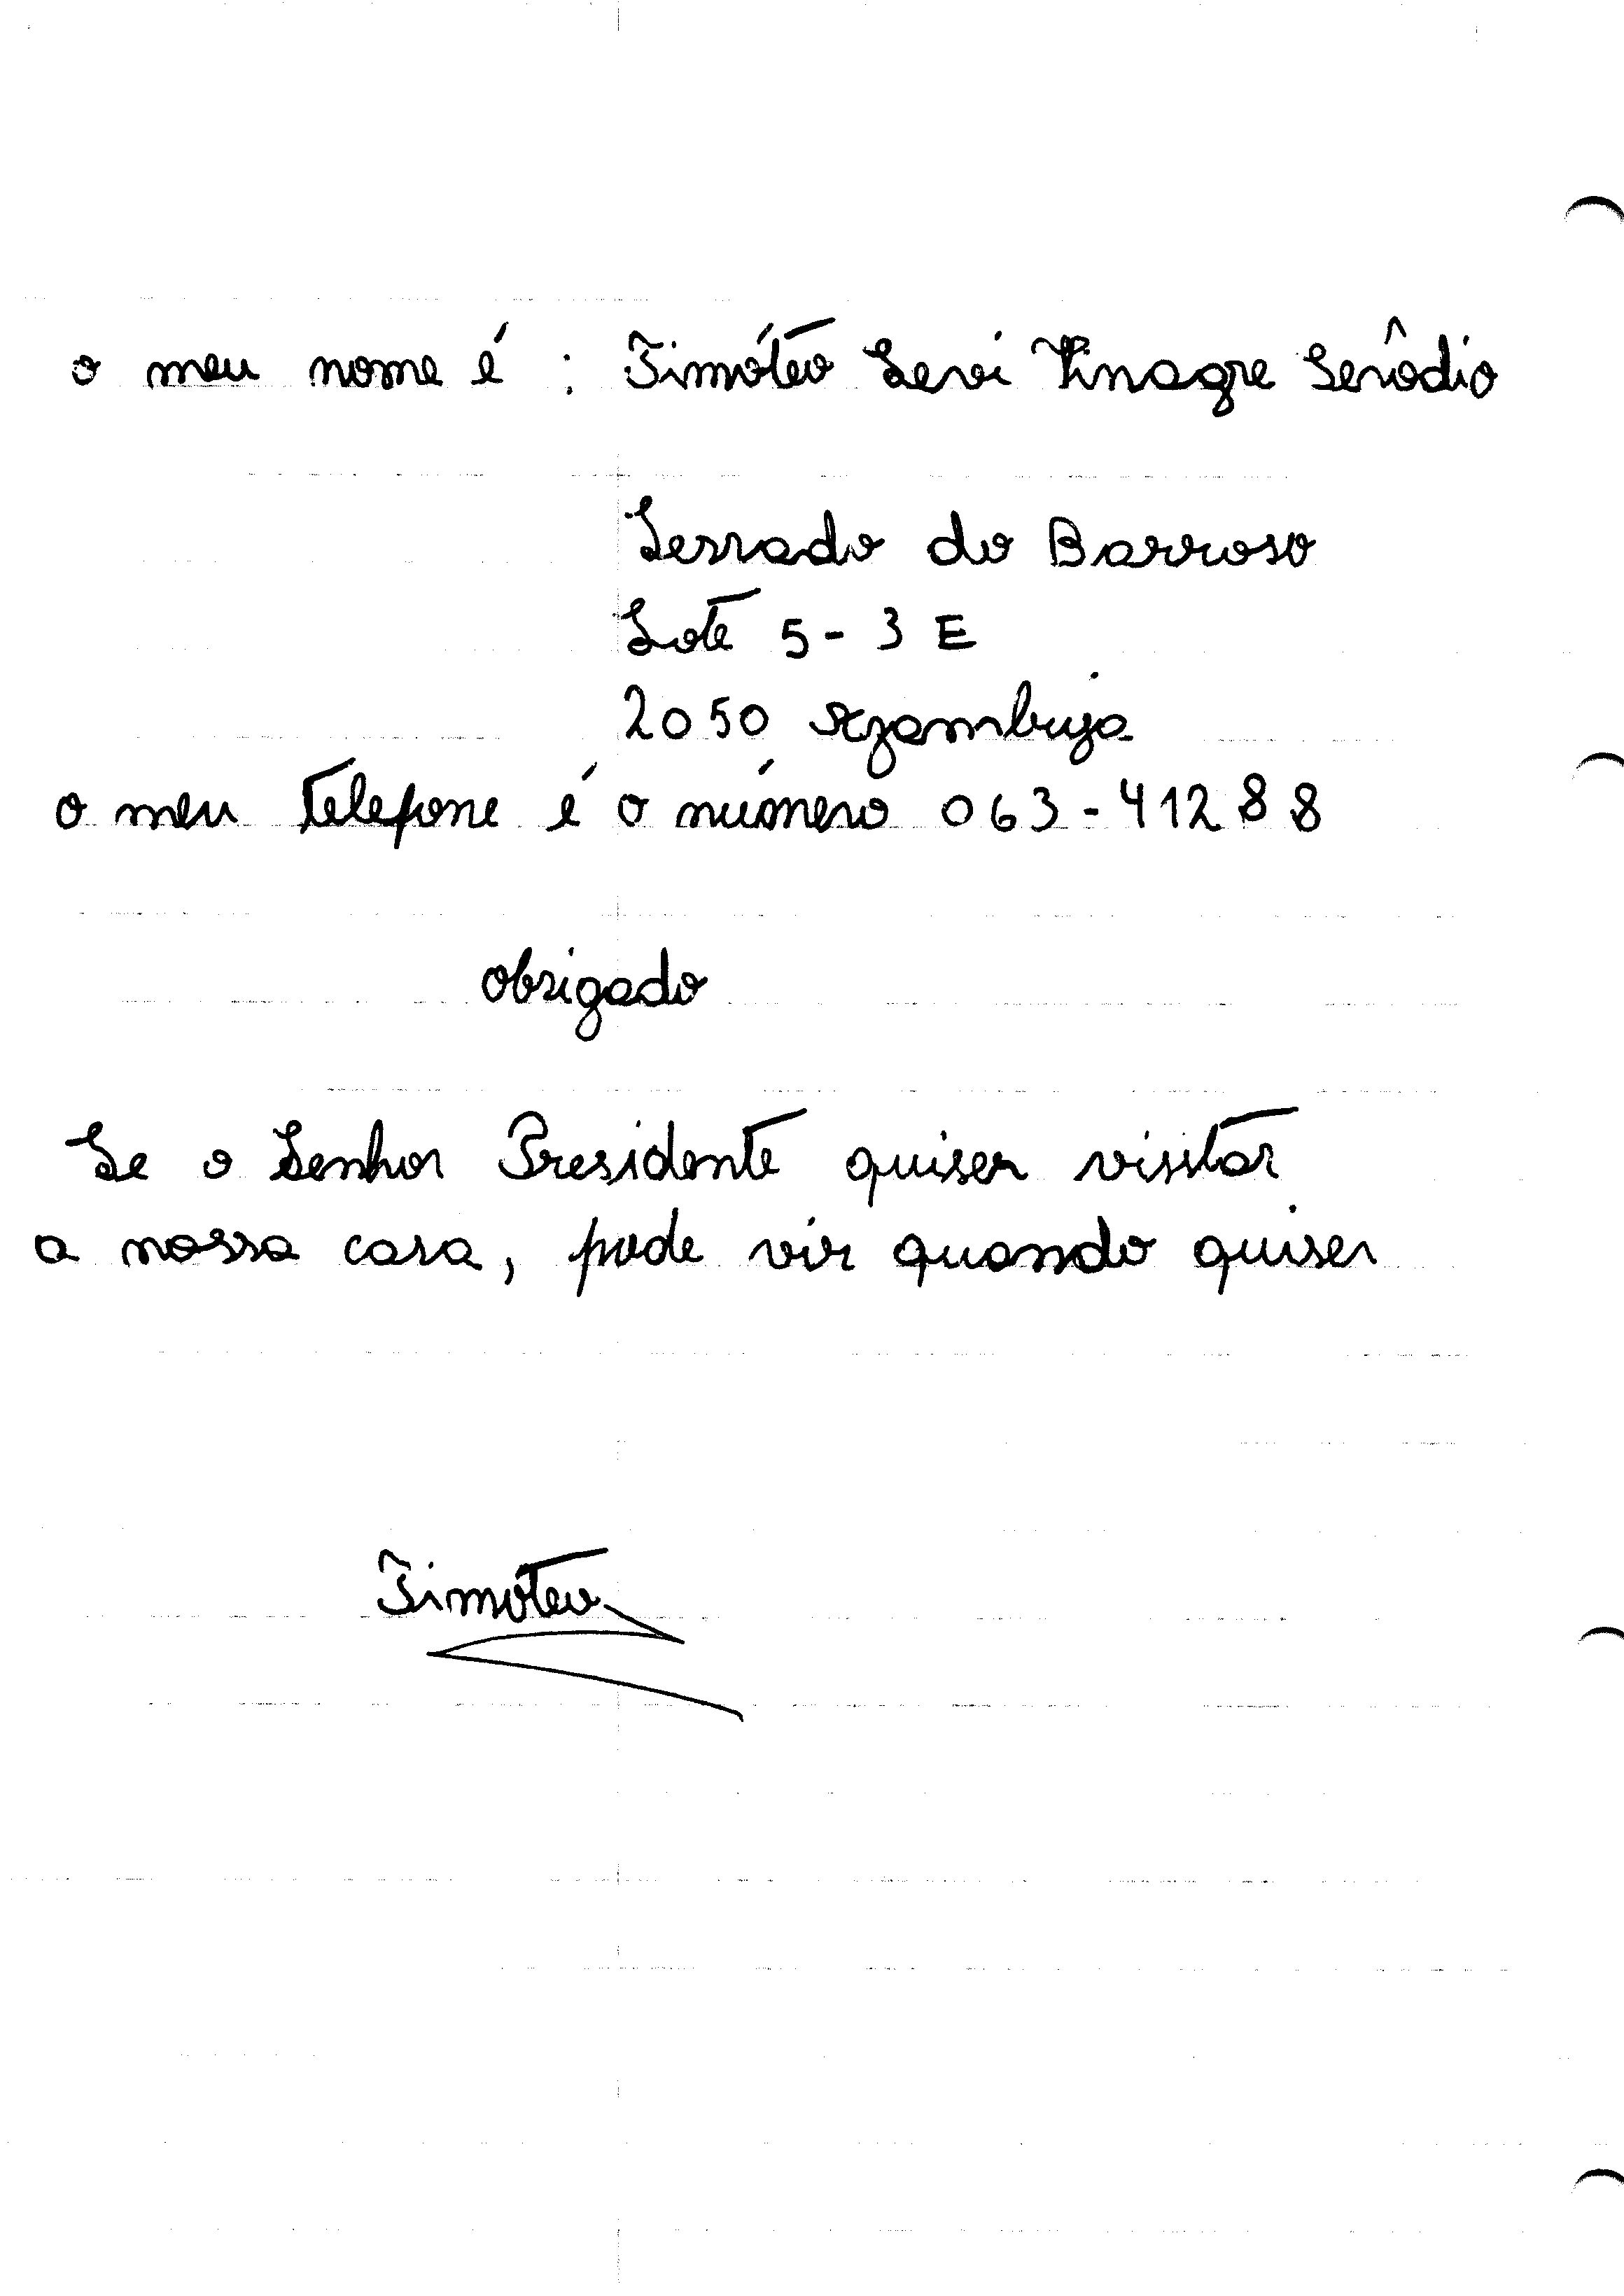 o meu nome é : Timóteo Levi Vinagre Serôdio
Serrado do Barroso
Lote 5 - 3 E
2050 Azambuja
o meu telefone é o número 063-41288
obrigado
Se o Senhor Presidente quiser visitar
a nossa casa, pode vir quando quiser
Timóteo